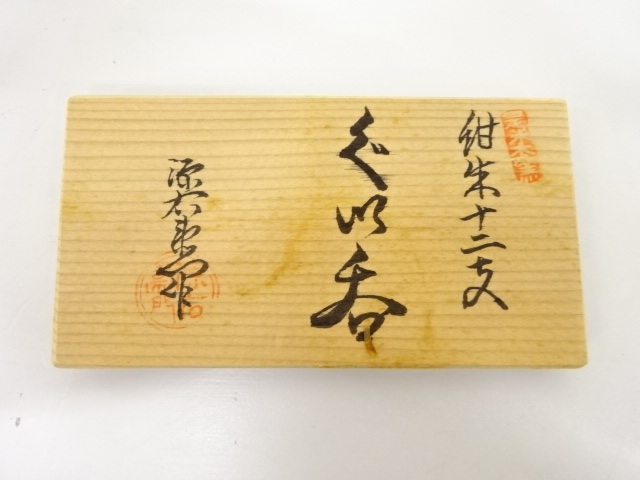 紺朱十二支
ぐい呑
源右衛門作